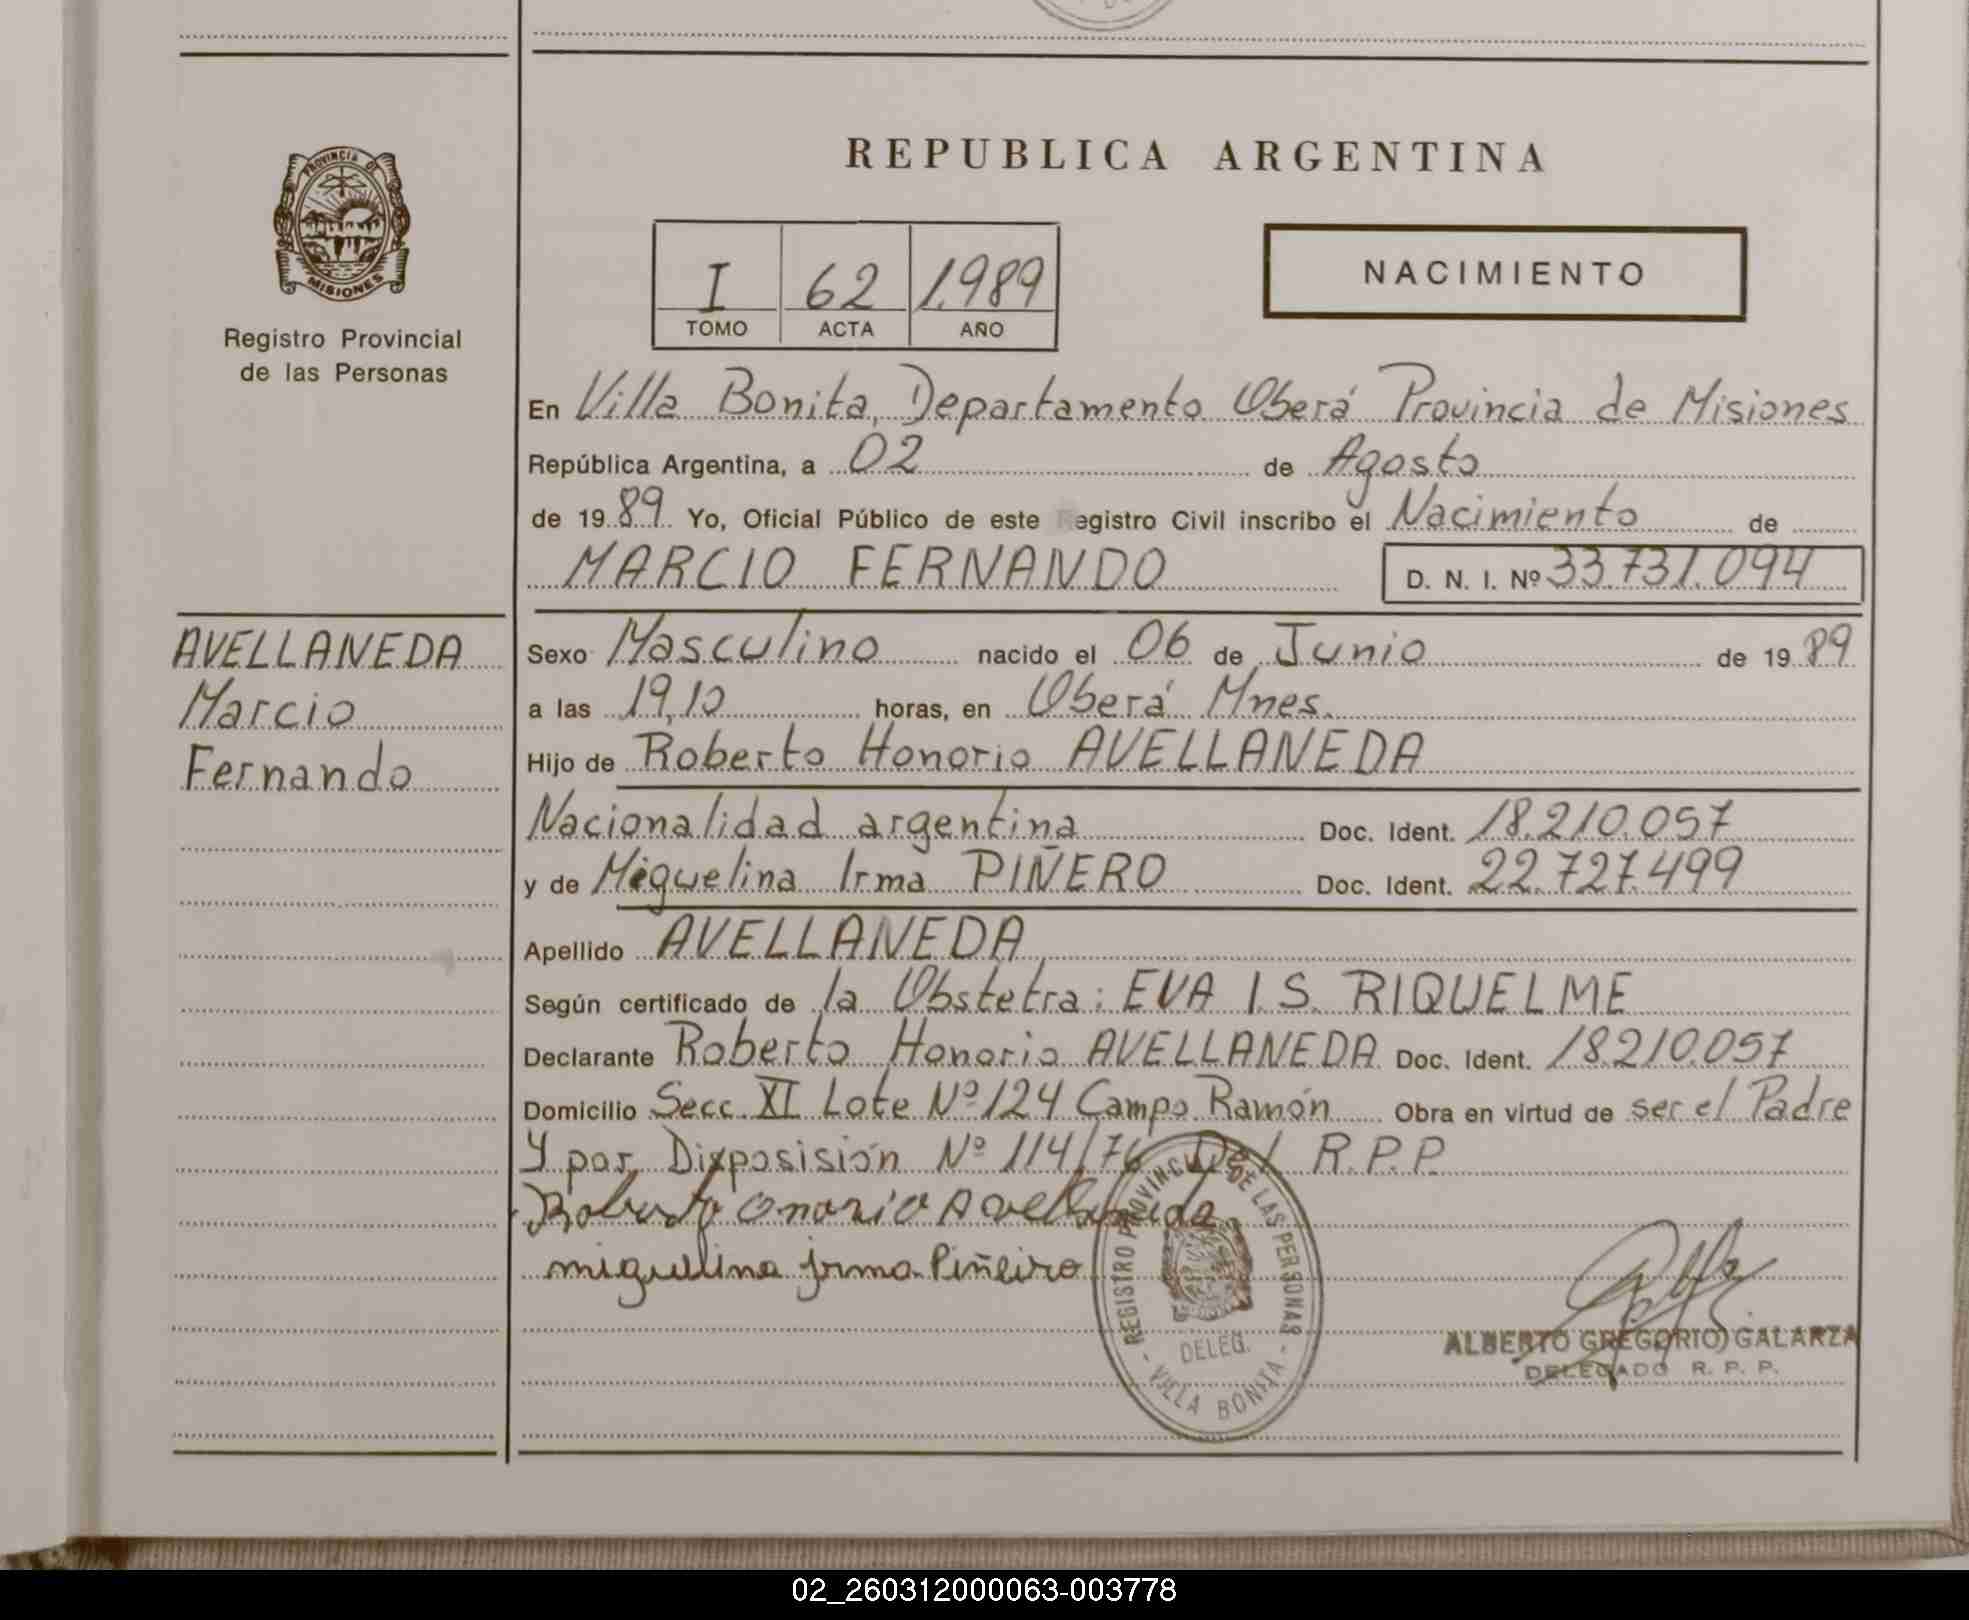 REPUBLICA ARGENTINA
PROVINCIA DE
MISIONES
Registro Provincial
de las Personas
I 62 1.989
TOMO ACTA AÑO
NACIMIENTO
En Villa Bonita, Departamento Oberá Provincia de Misiones
República Argentina, a 02 de Agosto
de 1989 Yo, Oficial Público de este Registro Civil inscribo el Nacimiento de
MARCIO FERNANDO D. N. I. Nº 33.731.094
AVELLANEDA
Marcio
Fernando
Sexo Masculino nacido el 06 de Junio de 1989
a las 19,10 horas, en Oberá Mnes.
Hijo de Roberto Honorio AVELLANEDA
Nacionalidad argentina Doc. Ident. 18.210.057
y de Miguelina Irma PIÑERO Doc. Ident. 22.727.499
Apellido AVELLANEDA
Según certificado de la Obstetra: EVA I.S. RIQUELME
Declarante Roberto Honorio AVELLANEDA Doc. Ident. 18.210.057
Domicilio Secc. XI Lote Nº 124 Campo Ramón Obra en virtud de ser el Padre
Y por Dixposisión Nº 114/76 Del R.P.P.
Roberto Onorio Avellaneda
miguelina irma Piñeiro
REGISTRO PROVINCIAL DE LAS PERSONAS
DELEG.
- VILLA BONITA -
ALBERTO GREGORIO GALARZA
DELEGADO R. P. P.
02_260312000063-003778